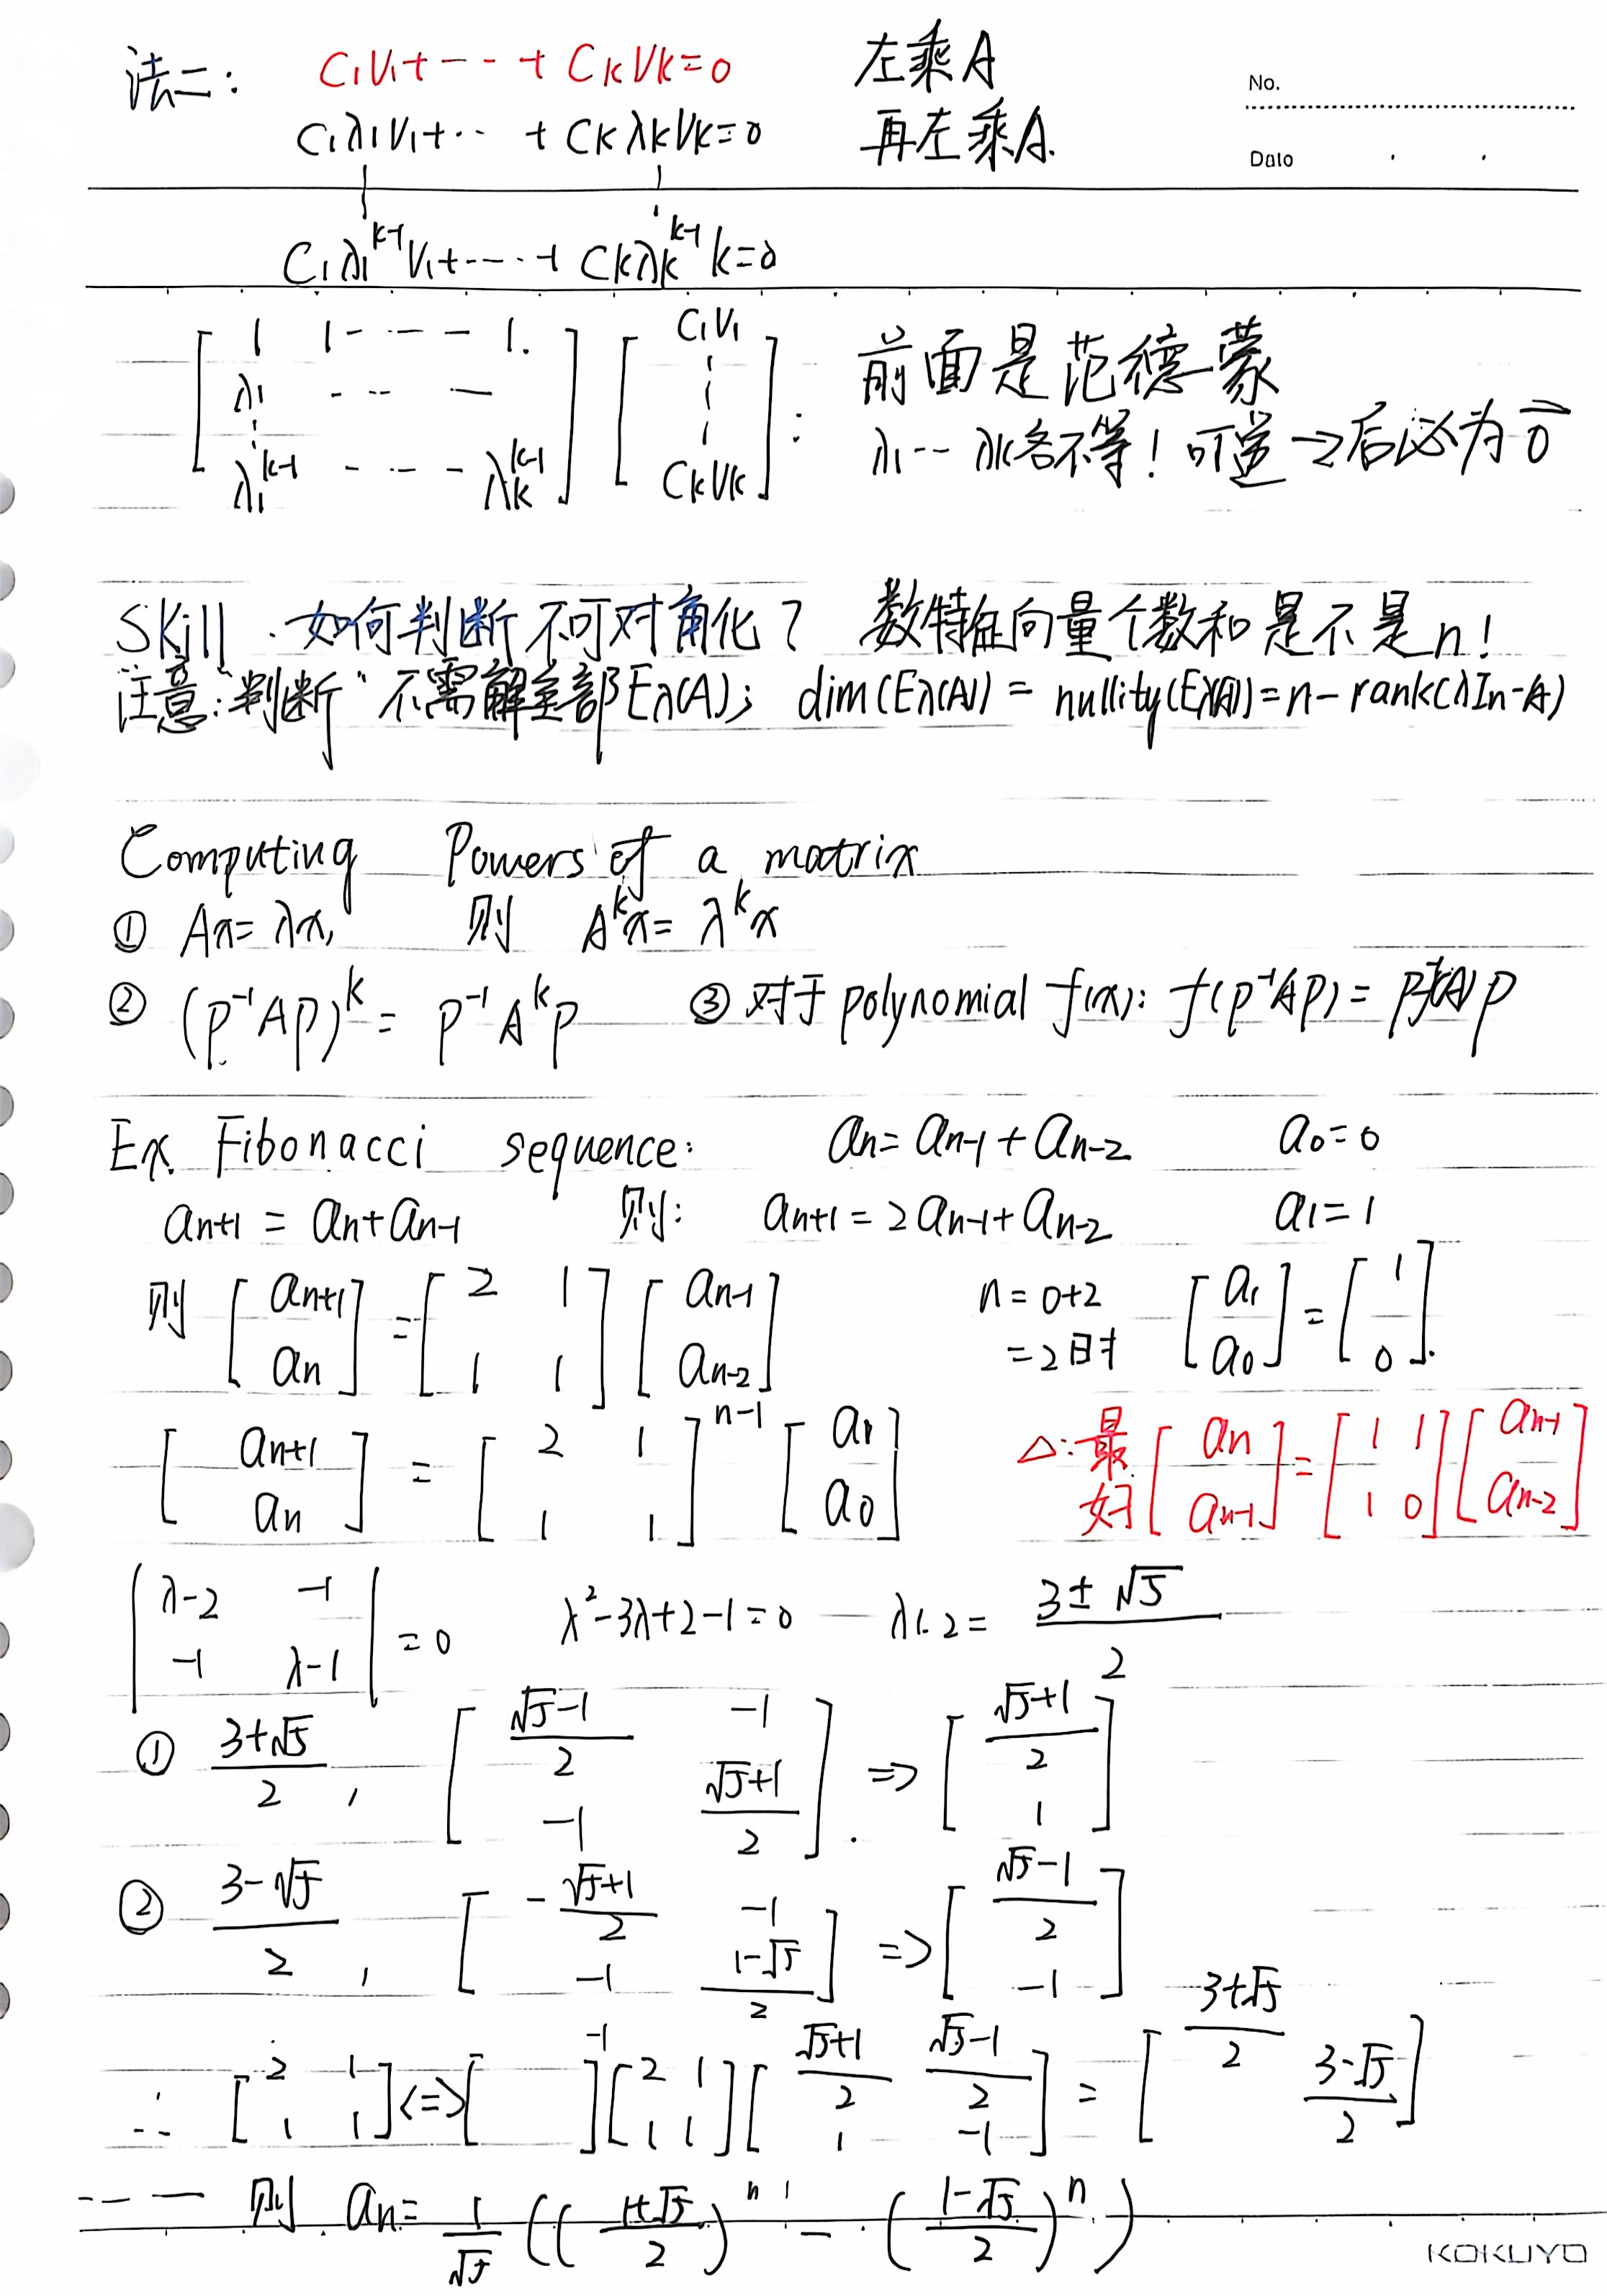 法二: C₁V₁+---+CₖVₖ=0 左乘A No.
C₁λ₁V₁+··+CₖλₖVₖ=0 再左乘A. Date
C₁λ₁^{k-1}V₁+----+Cₖλₖ^{k-1}k=0
[1 1---- 1. ; λ₁ --- — ; ⋮ ; λ₁^{k-1} ---- λₖ^{k-1}] [C₁V₁ ⋮ CₖVₖ] : 前面是范德蒙
λ₁--λₖ各不等! 可逆→后必为0⃗
Skill. 如何判断不可对角化? 数特征向量个数和是不是n!
注意:"判断"不需解全部Eλ(A); dim(Eλ(A)) = nullity(Eλ(A))=n-rank(λIn-A)
Computing Powers of a matrix
① Ax=λx, 则 A^k x=λ^k x
② (P⁻¹AP)^k = P⁻¹A^kP ③ 对于polynomial f(x): f(P⁻¹AP)= P⁻¹f(A)P
Ex. Fibonacci sequence: an=an-1+an-2 a0=0
an+1 = an+an-1 则: an+1=2an-1+an-2 a1=1
则 [an+1 ; an] = [2 1 ; 1 1] [an-1 ; an-2] n=0+2 =2时 [a1 ; a0] = [1 ; 0].
[an+1 ; an] = [2 1 ; 1 1]^{n-1} [a1 ; a0] △:最好 [an ; an-1] = [1 1 ; 1 0] [an-1 ; an-2]
|λ-2 -1 ; -1 λ-1| =0 λ²-3λ+2-1=0 λ1.2= (3±√5)/2
① (3+√5)/2, [(√5-1)/2 -1 ; -1 (√5+1)/2]. => [(√5+1)/2 ; 1]
② (3-√5)/2, [-(√5+1)/2 -1 ; -1 (1-√5)/2] => [(√5-1)/2 ; -1]
∴ [2 1 ; 1 1] <=> [ ]⁻¹ [2 1 ; 1 1] [(√5+1)/2 (√5-1)/2 ; 1 -1] = [(3+√5)/2 (3-√5)/2]
---— 则 an= 1/√5 (((1+√5)/2)^n - ((1-√5)/2)^n)
KOKUYO